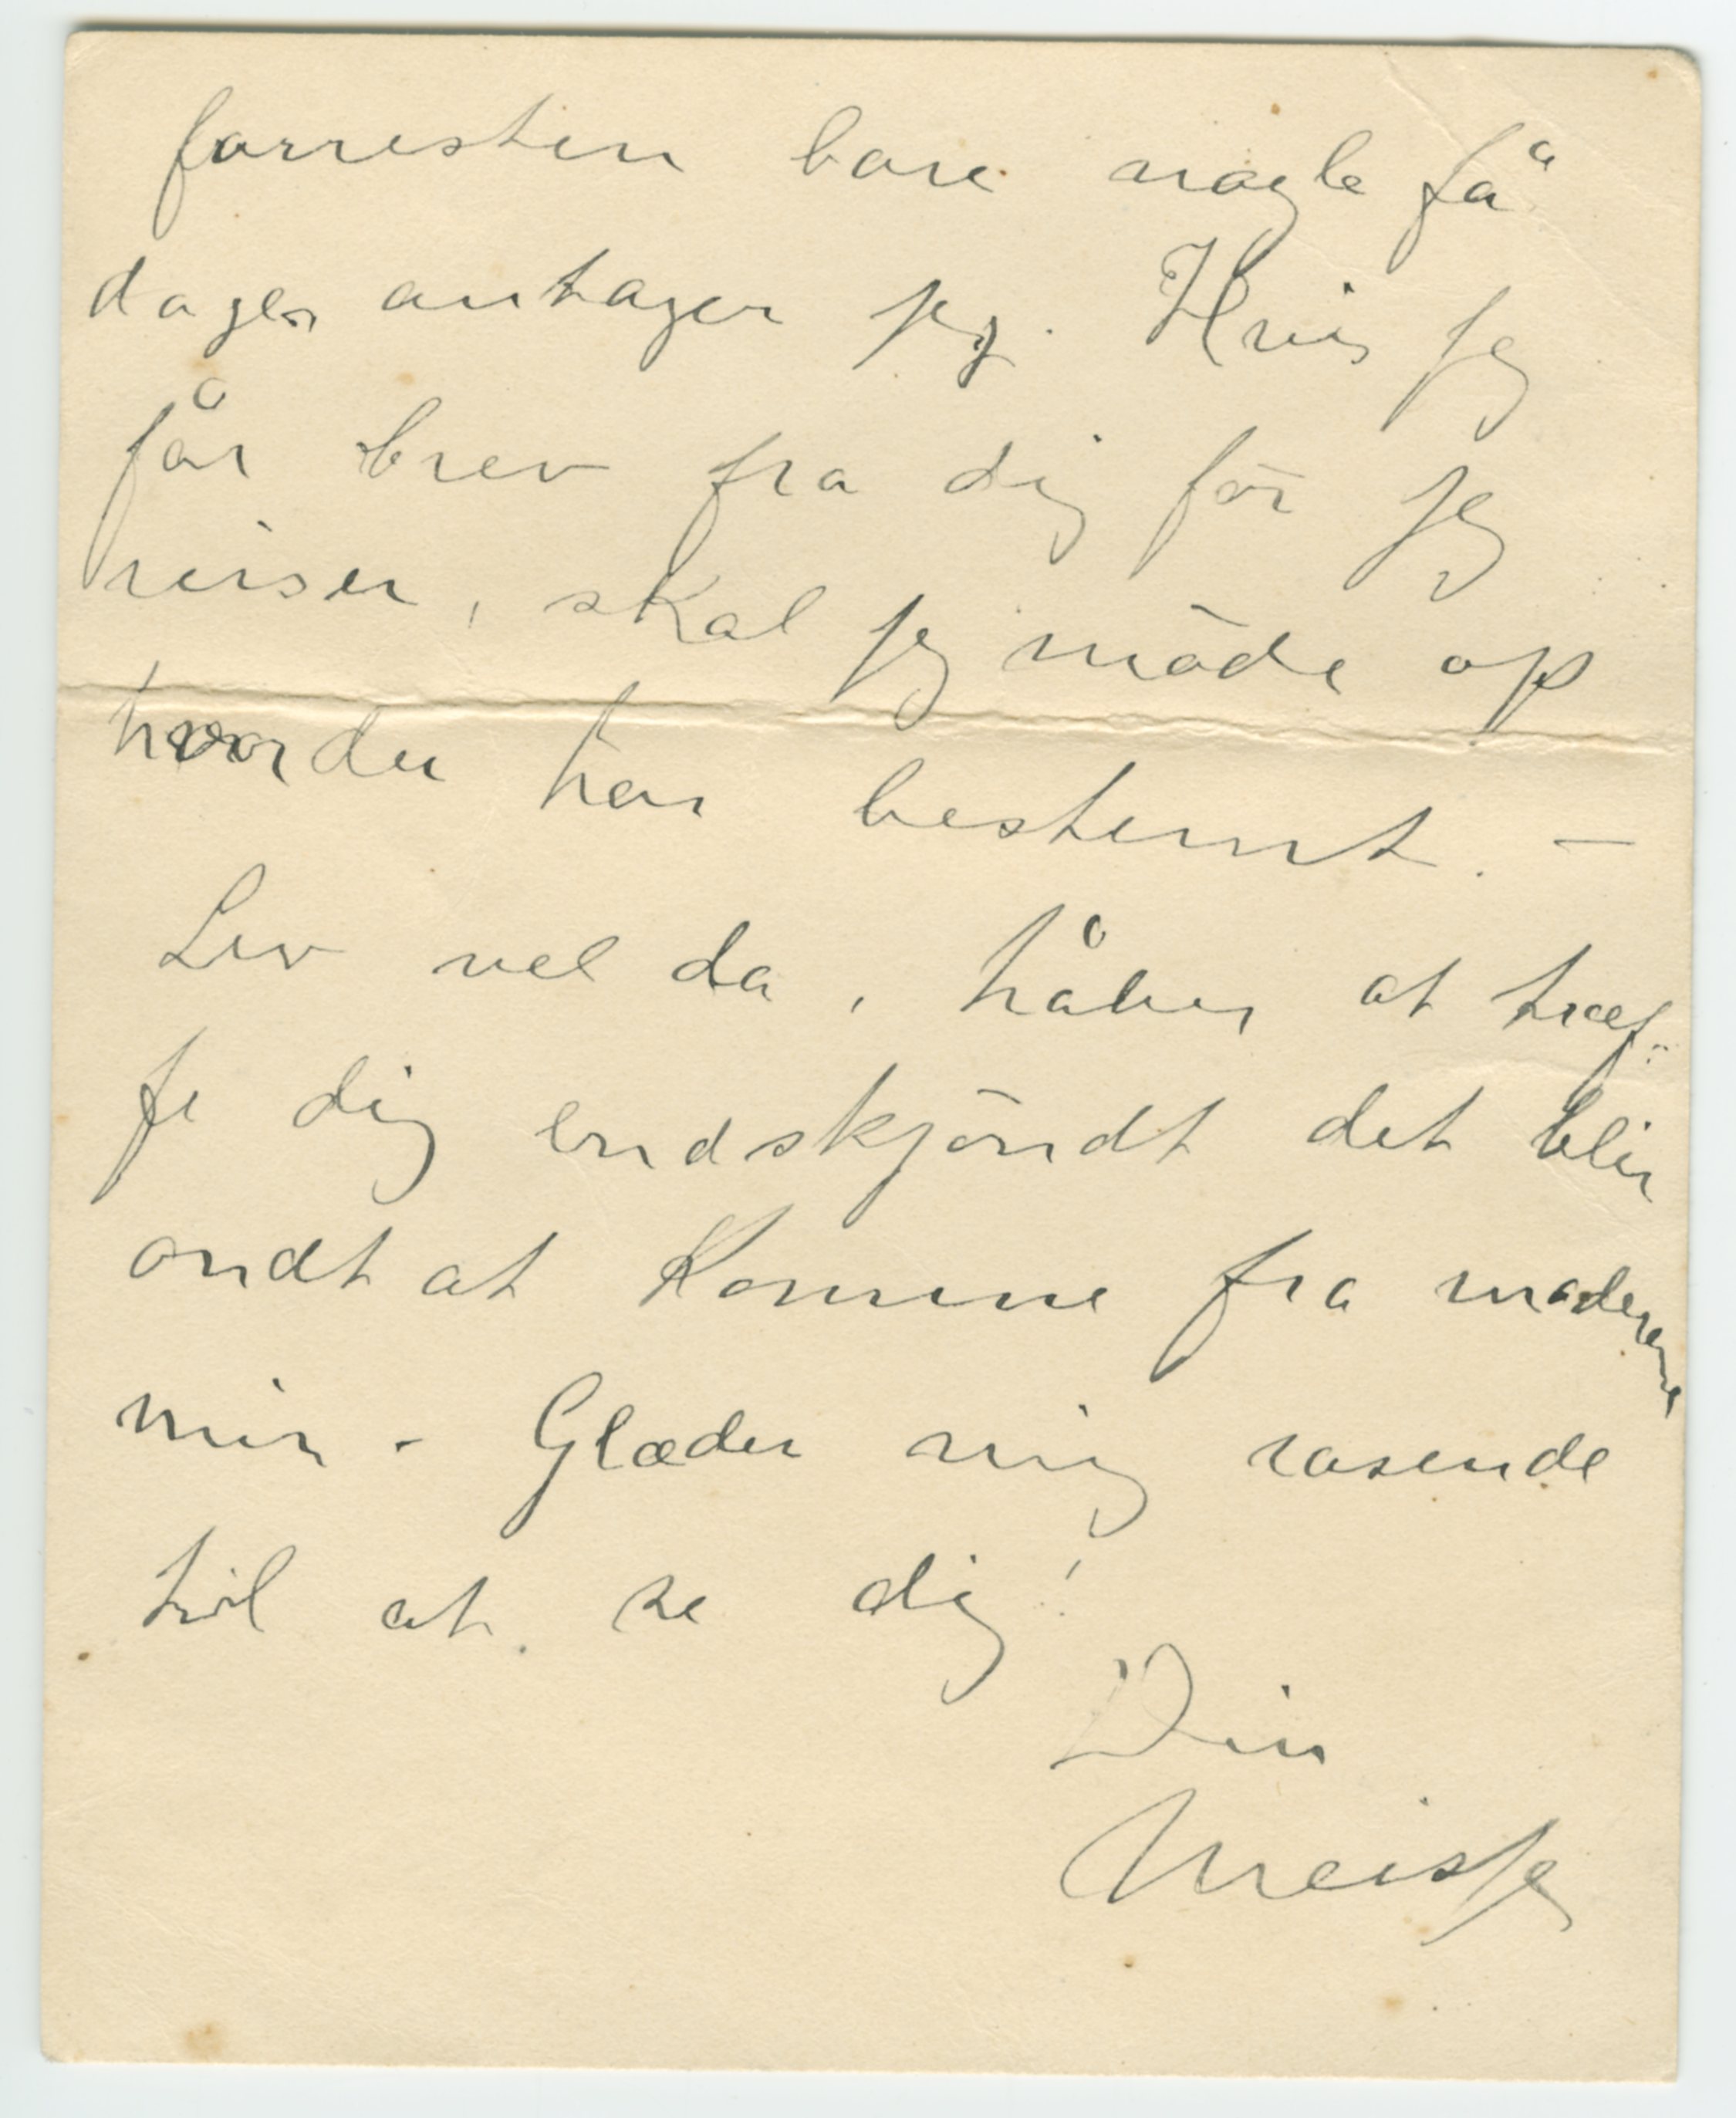 forresten bare nogle få
dager antager jeg. Hvis jeg
får brev fra dig för jeg
reiser, skal jeg möde op
hvor du har bestemt. –
Lev vel da, håber at træf-
fe dig endskjöndt det blir
ondt at komme fra moderen
min - Glæder mig rasende
til at se dig!
Din